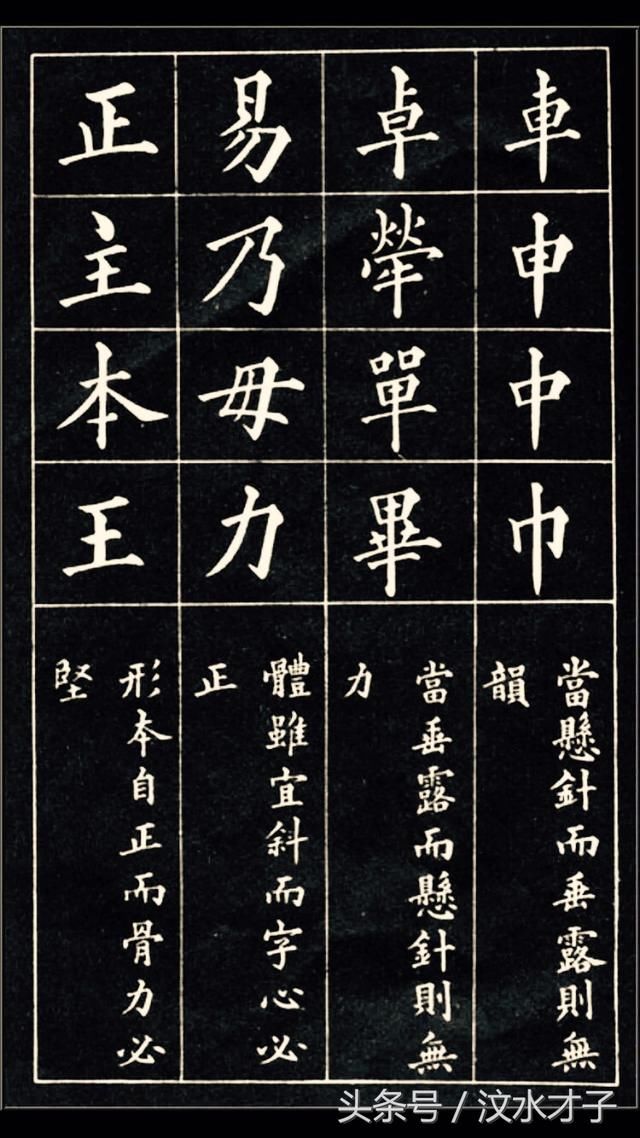 車申中巾
當懸針而垂露則無
韻
卓犖單畢
當垂露而懸針則無
力
易乃毋力
體雖宜斜而字心必
正
正主本王
形本自正而骨力必
堅
头条号／汶水才子